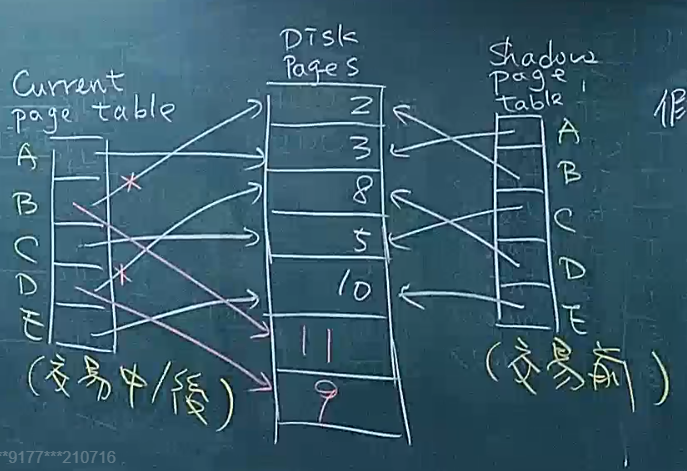 Current
page table
A
B
C
D
E
(交易中/後)
Disk
Pages
2
3
8
5
10
11
9
Shadow
page
table
A
B
C
D
E
(交易前)
**9177***210716